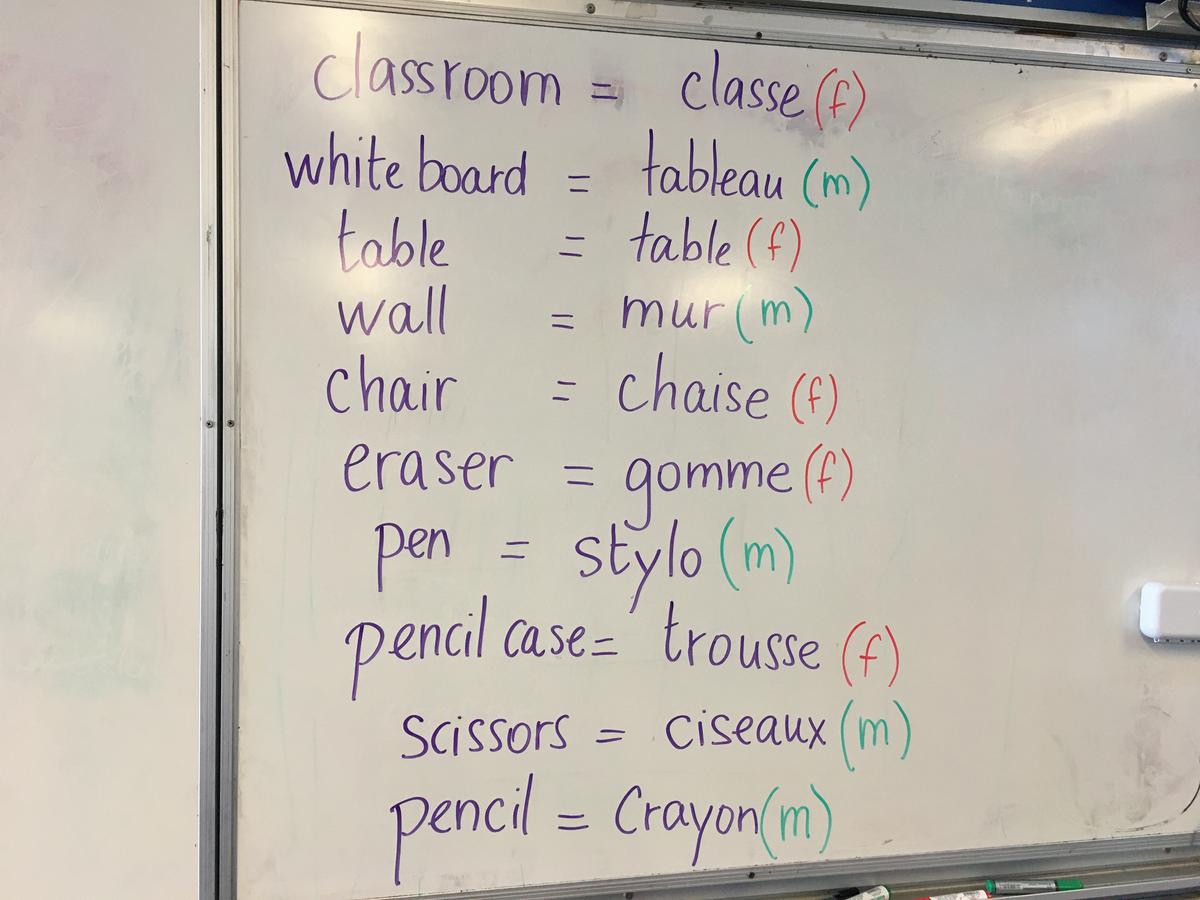 classroom = classe (f)
white board = tableau (m)
table = table (f)
wall = mur (m)
chair = chaise (f)
eraser = gomme (f)
pen = stylo (m)
pencil case = trousse (f)
scissors = ciseaux (m)
pencil = Crayon (m)